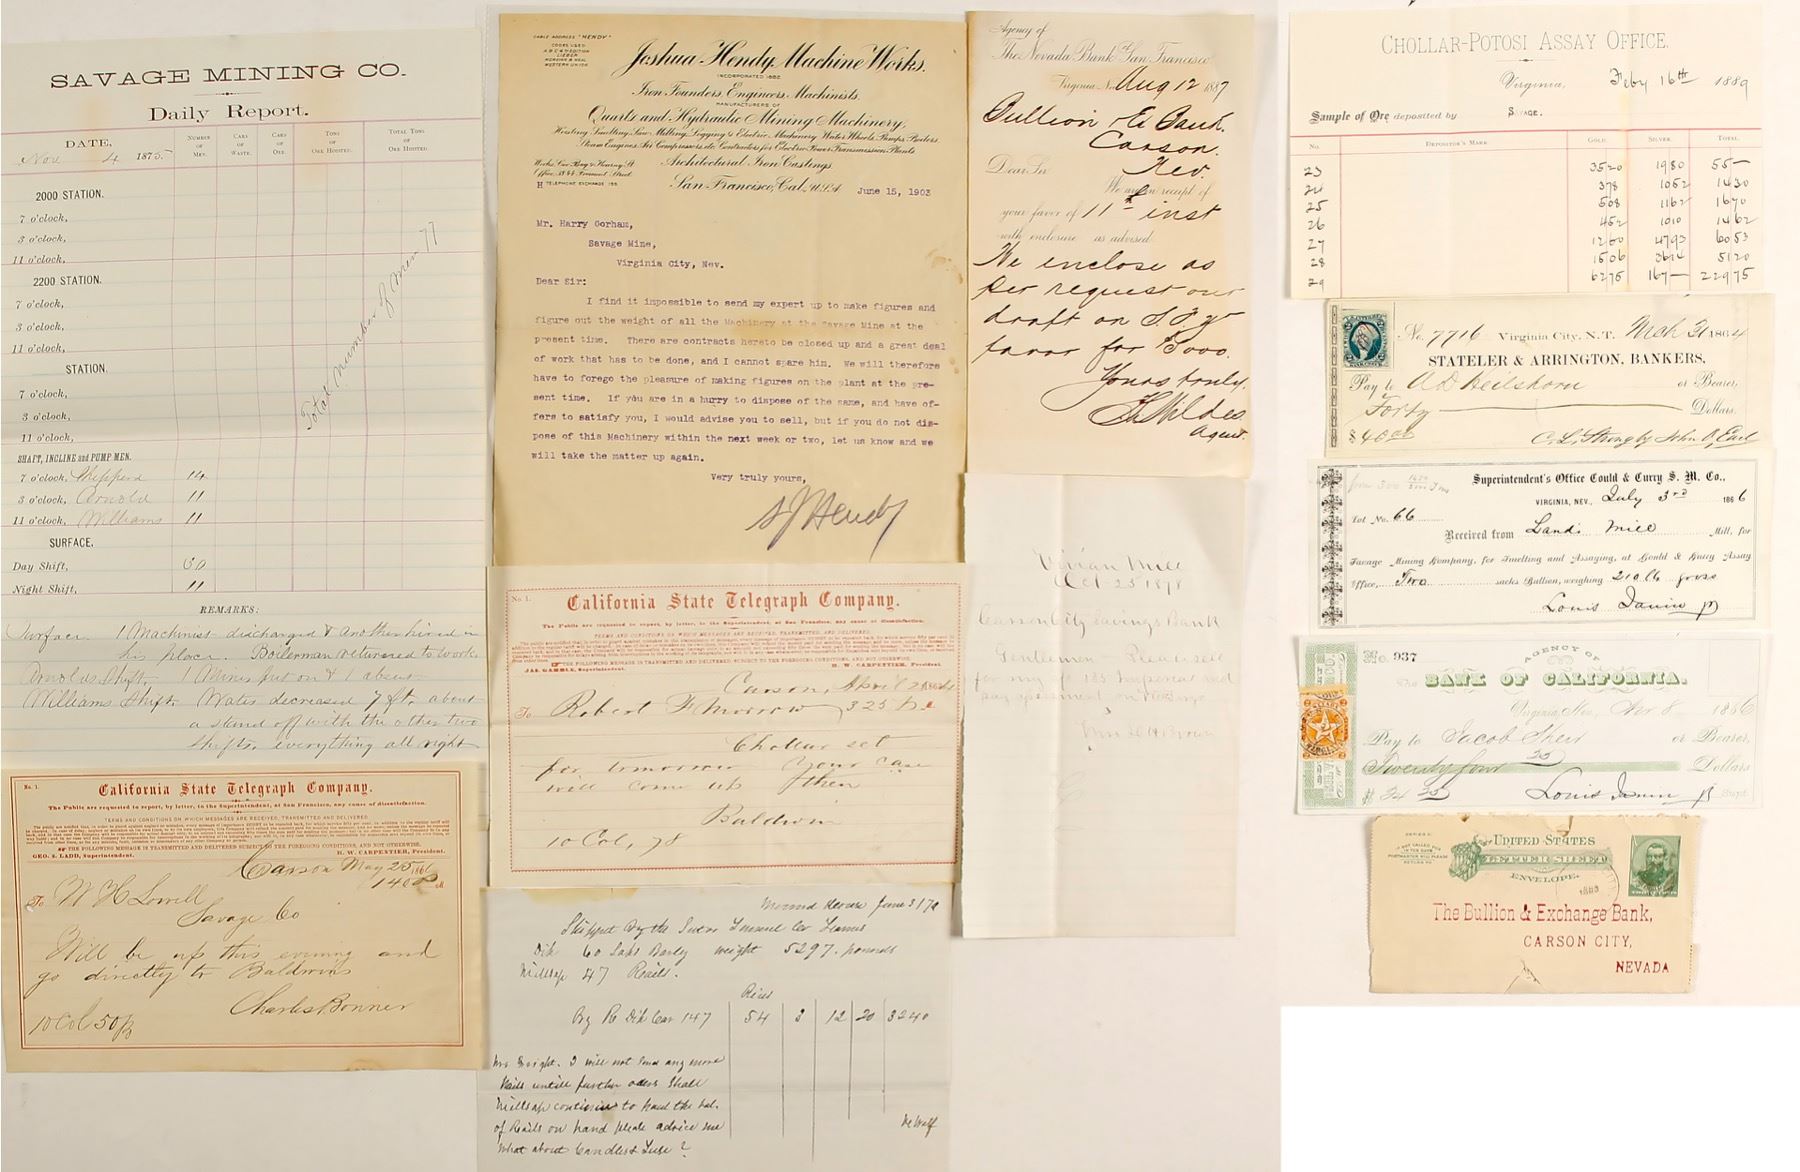 SAVAGE MINING CO.
Daily Report.
DATE, NUMBER OF MEN. CARS OF WASTE. CARS OF ORE. TONS OF ORE HOISTED. TOTAL TONS OF ORE HOISTED.
Nov 4 1875
2000 STATION.
7 o'clock,
3 o'clock,
11 o'clock,
2200 STATION.
7 o'clock,
3 o'clock,
11 o'clock,
STATION.
7 o'clock,
3 o'clock,
11 o'clock,
Total number of Men 77
SHAFT, INCLINE and PUMP MEN.
7 o'clock, Shepperd 14
3 o'clock, Arnold 11
11 o'clock, Williams 11
SURFACE.
Day Shift, 30
Night Shift, 11
REMARKS:
Surface. 1 Machinist discharged & another hired in
his place. Boilerman returned to work.
Arnolds Shift, 1 Miner put on & 1 absent
Williams Shift. Water decreased 7 ft. about
a stand off with the other two
shifts, everything all right
No. 1.
California State Telegraph Company.
The Public are requested to report, by letter, to the Superintendent, at San Francisco, any cause of dissatisfaction.
TERMS AND CONDITIONS ON WHICH MESSAGES ARE RECEIVED, TRANSMITTED AND DELIVERED.
THE FOLLOWING MESSAGE IS TRANSMITTED AND DELIVERED SUBJECT TO THE FOREGOING CONDITIONS, AND NOT OTHERWISE.
GEO. S. LADD, Superintendent. H. W. CARPENTIER, President.
Carson May 25 186
140
To W H Lowell
Savage Co
Will be up this evening and
go directly to Baldwins
Charles Bonner
10 Col 50
CABLE ADDRESS "HENDY"
CODES USED
A B C 4TH EDITION
LIEBER
MOREING & NEAL
WESTERN UNION
Joshua Hendy Machine Works.
INCORPORATED 1882
Iron Founders, Engineers, Machinists.
MANUFACTURERS OF
Quartz and Hydraulic Mining Machinery,
Hoisting, Smelting, Saw-Milling, Logging & Electric Machinery, Water Wheels, Pumps, Boilers
Steam Engines, Air Compressors, etc. Contractors for Electric Power Transmission Plants
Architectural Iron Castings.
Works, Cor. Bay & Kearny St
Office, 38-44 Fremont Street.
H TELEPHONE EXCHANGE
San Francisco, Cal., U.S.A. June 15, 1903
Mr. Harry Gorham,
Savage Mine,
Virginia City, Nev.
Dear Sir:
I find it impossible to send my expert up to make figures and
figure out the weight of all the Machinery at the Savage Mine at the
present time. There are contracts hereto be closed up and a great deal
of work that has to be done, and I cannot spare him. We will therefore
have to forego the pleasure of making figures on the plant at the pre-
sent time. If you are in a hurry to dispose of the same, and have of-
fers to satisfy you, I would advise you to sell, but if you do not dis-
pose of this Machinery within the next week or two, let us know and we
will take the matter up again.
Very truly yours,
S J Hendy
No. 1.
California State Telegraph Company.
The Public are requested to report, by letter, to the Superintendent, at San Francisco, any cause of dissatisfaction.
TERMS AND CONDITIONS ON WHICH MESSAGES ARE RECEIVED, TRANSMITTED, AND DELIVERED.
THE FOLLOWING MESSAGE IS TRANSMITTED AND DELIVERED SUBJECT TO THE FOREGOING CONDITIONS, AND NOT OTHERWISE.
JAS. GAMBLE, Superintendent. H. W. CARPENTIER, President.
Carson, April 2 1864
To Robert F Morrow 325
Chollar set
for tomorrow Your case
will come up then
Baldwin
10 Col, 78
Mound House June 3 / 78
Shipped by the
60 Saks Barly weight 5297. pounds
Millsap 47 Rails.
147 54 3 12 20 3240
Mr. Wright. I will not send any more
Rails until further oders Shall
Millsap continue to haul the bal.
of Rails on hand please advice me
what about Candles & Fuse?
Agency of
The Nevada Bank of San Francisco
Virginia N. Aug 12 1887
Bullion & Ex Bank.
Carson.
Nev.
Dear Sir
We are in receipt of
your favor of 11th inst
with enclosure as advised.
We enclose as
per request our
draft on S. F. yr
favor for $5000.
Yours truly,
Agent.
Vivian Mill
Oct 25 1878
Carson City Savings Bank
Gentlemen - Please sell
for my a/c 125 Imperial and
pay assessment on
CHOLLAR-POTOSI ASSAY OFFICE.
Virginia, Feby 16th 1889
Sample of Ore deposited by SAVAGE.
No. DEPOSITOR'S MARK GOLD. SILVER. TOTAL.
23 3520 1980 55–
24 378 1052 1430
25 508 1162 1670
26 452 1010 1462
27 1260 4793 6053
28 1506 3614 5120
29 6275 167– 22975
No. 7716 Virginia City, N. T. Mch 31 1864
STATELER & ARRINGTON, BANKERS,
Pay to A D Heilshorn or Bearer,
Forty Dollars.
$40.00 C. L. Strong by John O. Earl
Superintendent's Office Gould & Curry S. M. Co.,
VIRGINIA, NEV., July 3rd 1866
Lot No. 66
Received from Land's Mill Mill, for
Savage Mining Company, for Smelting and Assaying, at Gould & Curry Assay
Office, Two sacks Bullion, weighing 210 lb gross
Louis Janin Jr
No. 937
AGENCY OF
The BANK OF CALIFORNIA.
Virginia, Nev, 8 1866
Pay to Jacob or Bearer,
Twenty four 25 Dollars
$ 24 25 Louis Janin Jr Supt.
SERIES
IF NOT CALLED FOR IN TEN DAYS POSTMASTER WILL PLEASE RETURN TO
UNITED STATES
LETTER SHEET
ENVELOPE.
The Bullion & Exchange Bank,
CARSON CITY,
NEVADA